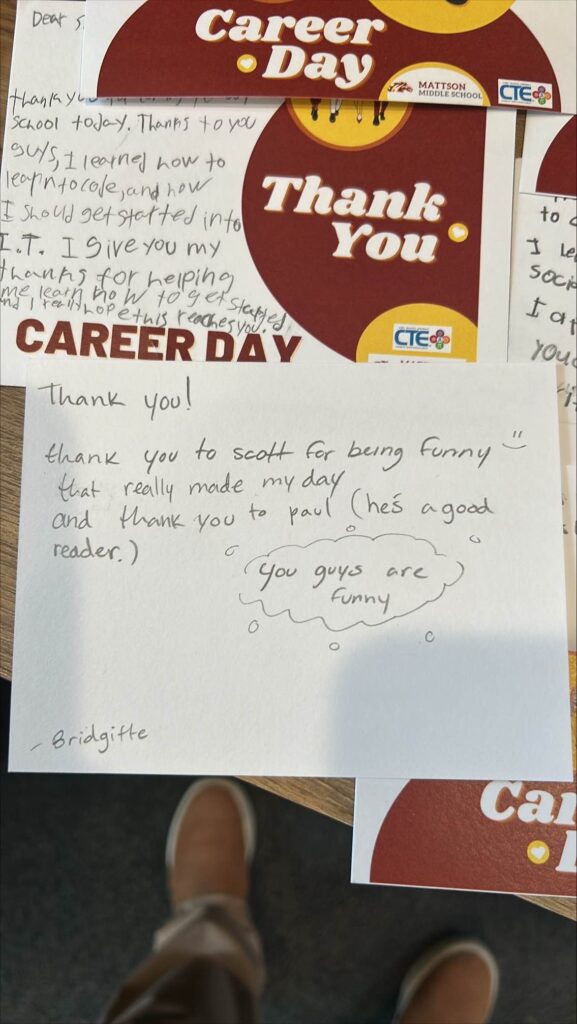 Dear S
Career
Day
MATTSON
MIDDLE SCHOOL
CTE
thank you
school today. Thanks to you
guys, I learned how to
learn to code, and how
I should get started into
I.T. I give you my
thanks for helping
me learn how to get started
and I really hope this reaches you.
Thank
You
CTE
CAREER DAY
to
I le
socia
I a
you
Thank you!
thank you to scott for being funny
that really made my day
and thank you to paul (he's a good
reader.)
You guys are
funny
- Bridgitte
Car
D